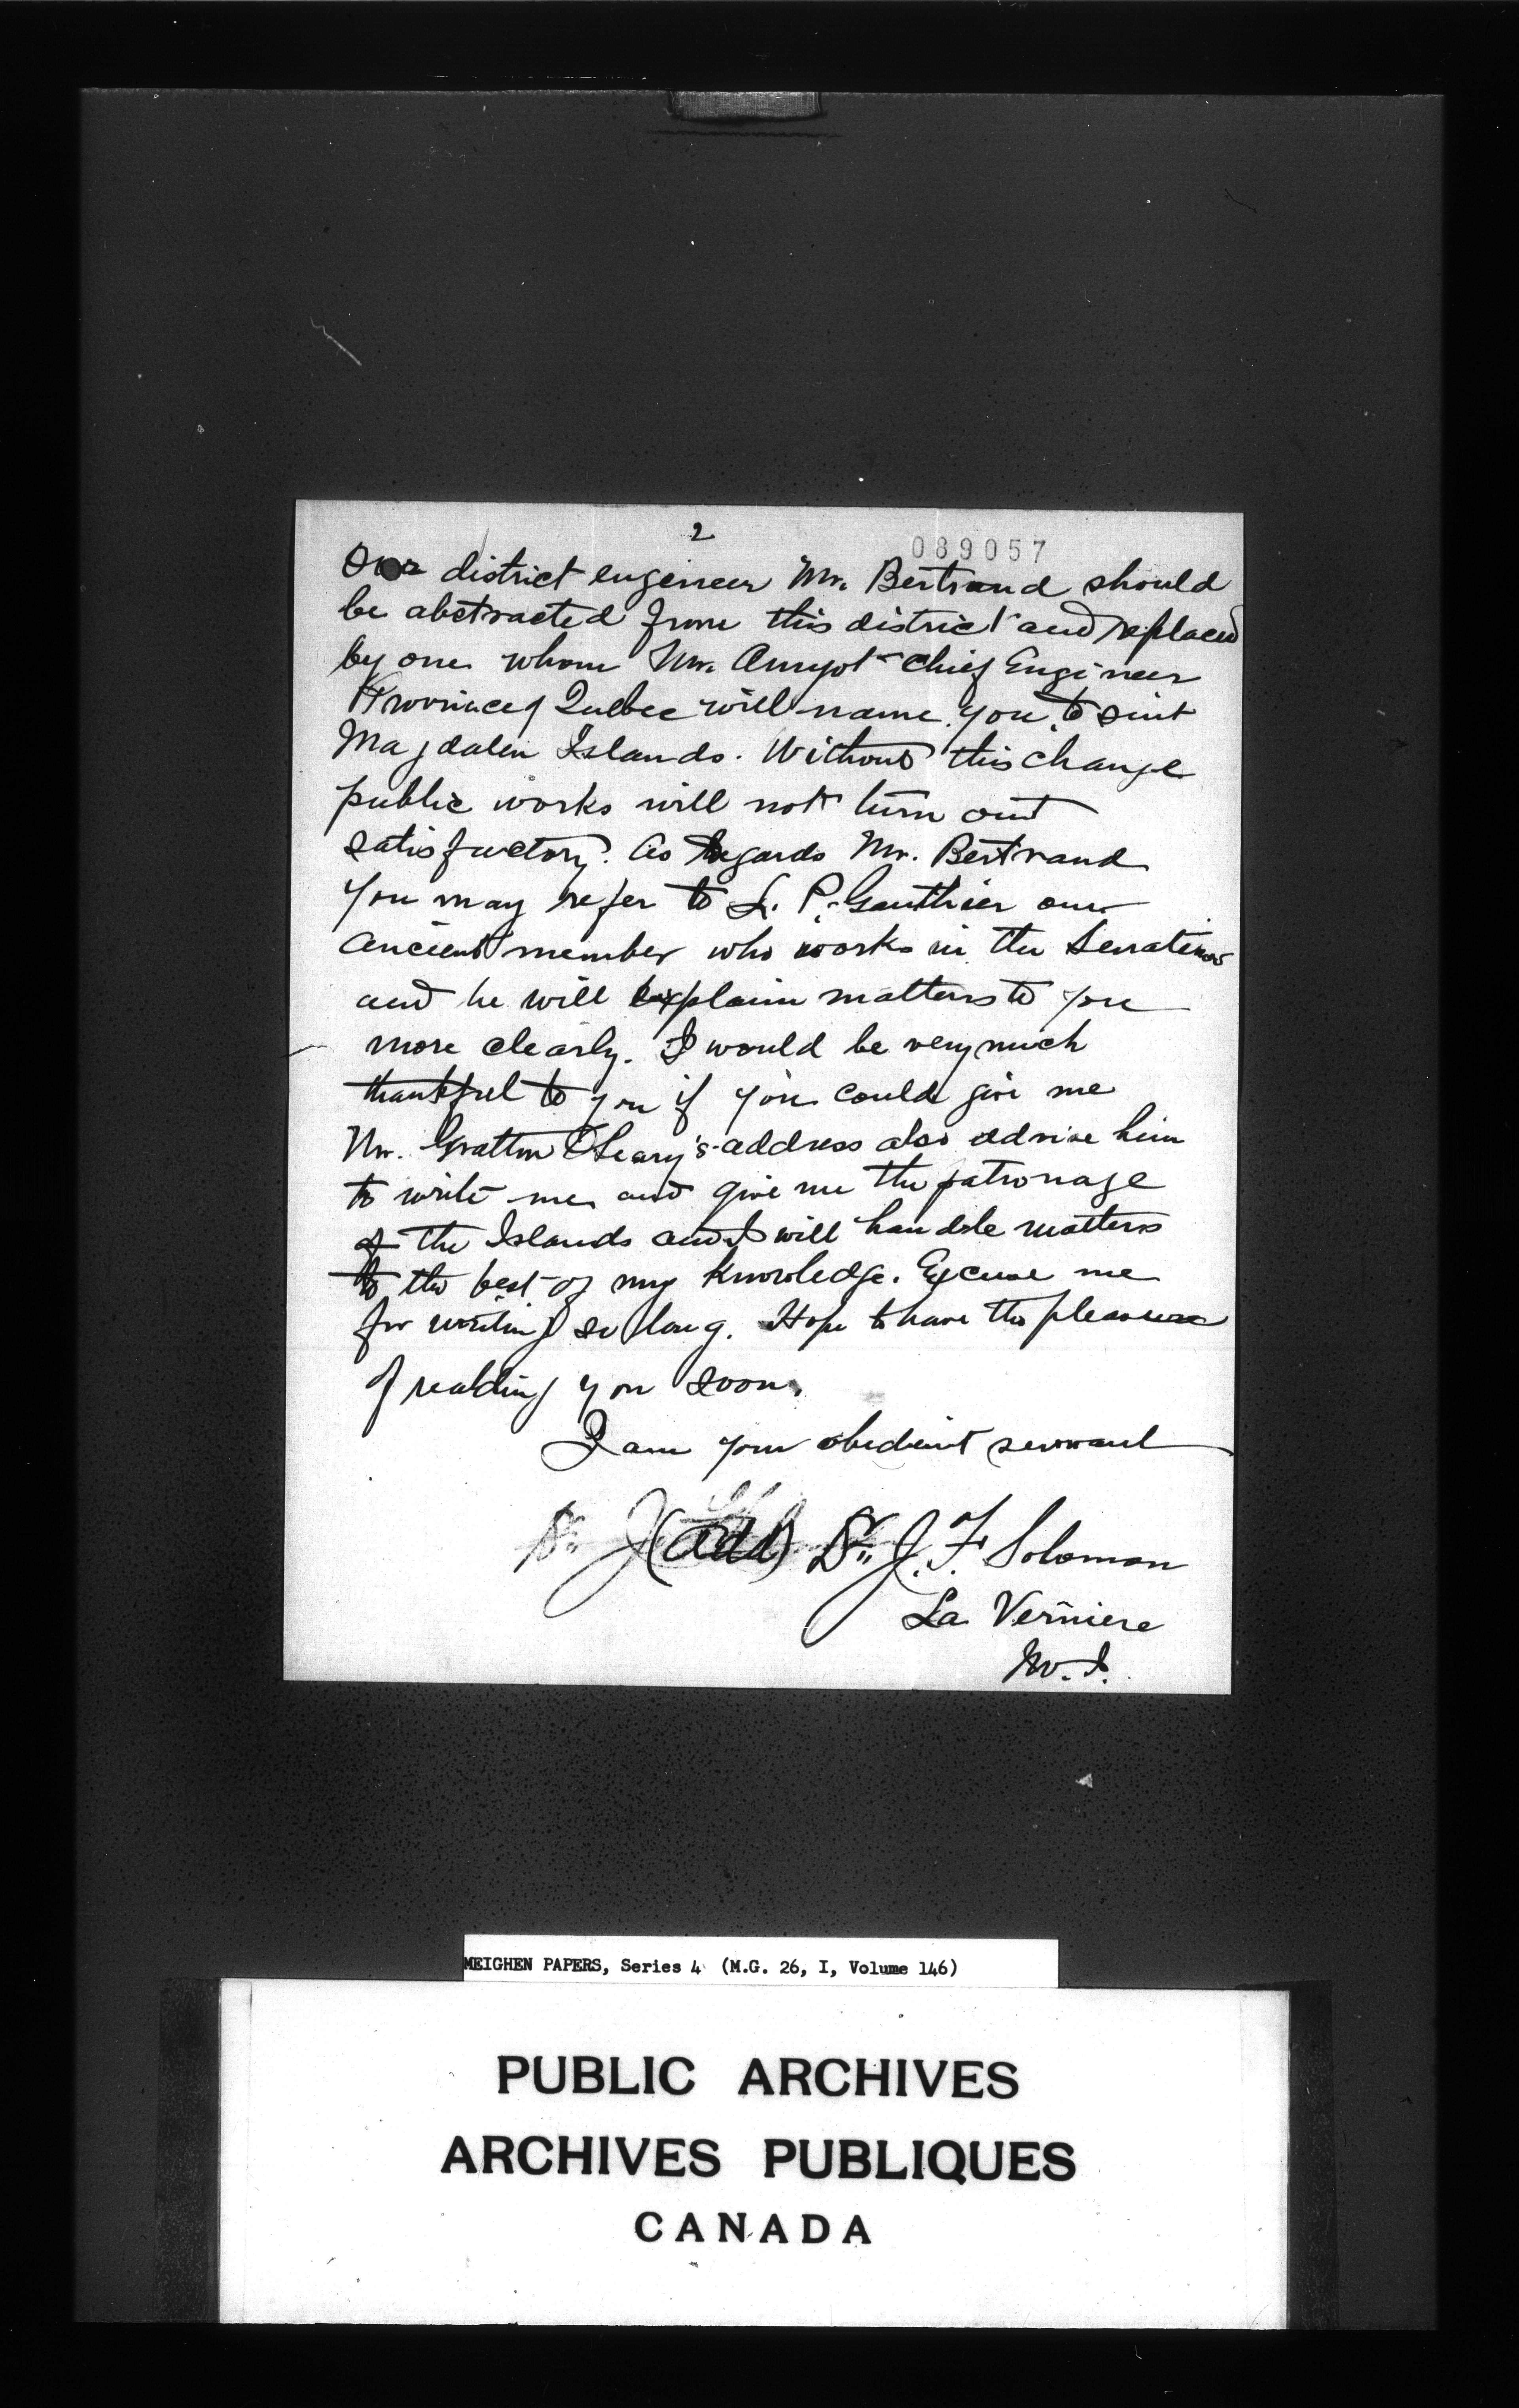 2
089057
Our district engineer Mr. Bertrand should
be abstracted from this district and replaced
by one whom Mr. Amyot chief Engineer
Province of Quebec will name you to suit
Magdalen Islands. Without this change
public works will not turn out
satisfactory. As regards Mr. Bertrand
you may refer to L. P. Gauthier our
ancient member who works in the Senate now
and he will explain matters to you
more clearly. I would be very much
thankful to you if you could give me
Mr. Gratton O'Leary's address also advise him
to write me and give me the patronage
of the Islands and I will handle matters
to the best of my knowledge. Excuse me
for writing so long. Hope to have the pleasure
of reading you soon.
I am your obedient servant
(add) Dr. J. F. Solomon
La Verniere
M. I.
MEIGHEN PAPERS, Series 4 (M.G. 26, I, Volume 146)
PUBLIC ARCHIVES
ARCHIVES PUBLIQUES
CANADA